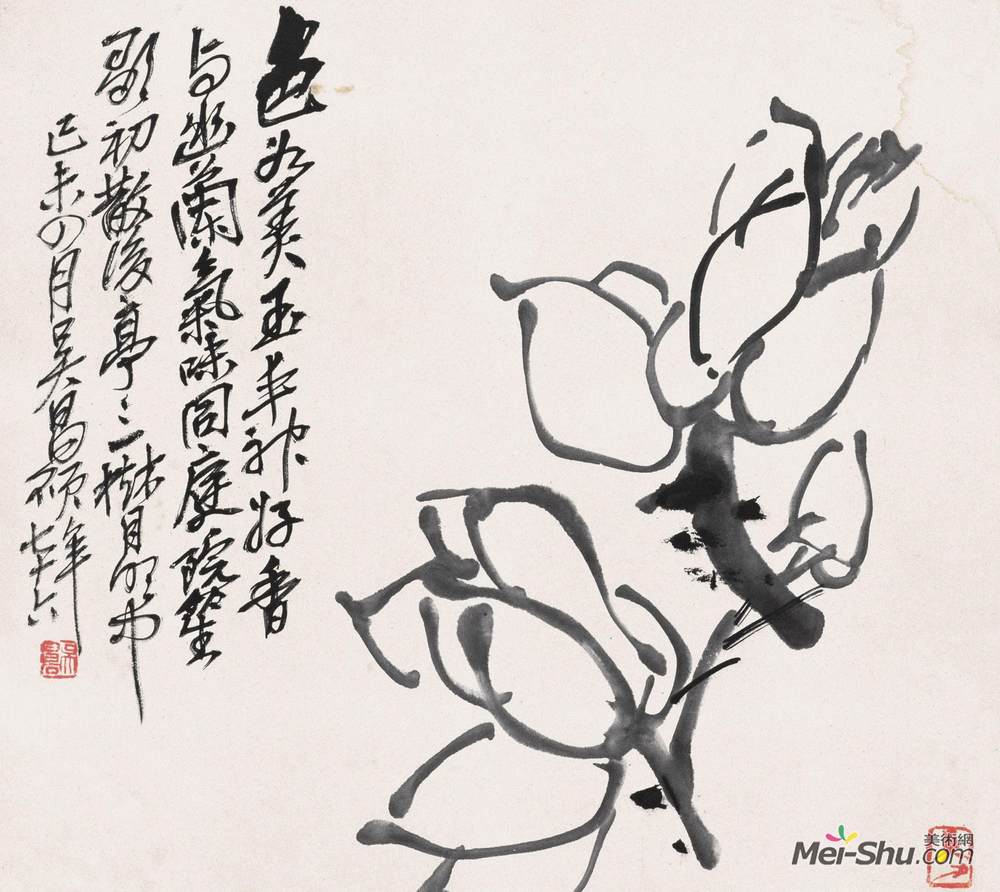 色如美玉丰神好香
与幽蘭氣味同庭院笙
歌初散後亭〻一樹月明中
己未四月吳昌碩年七十六
美術網
Mei-Shu.com